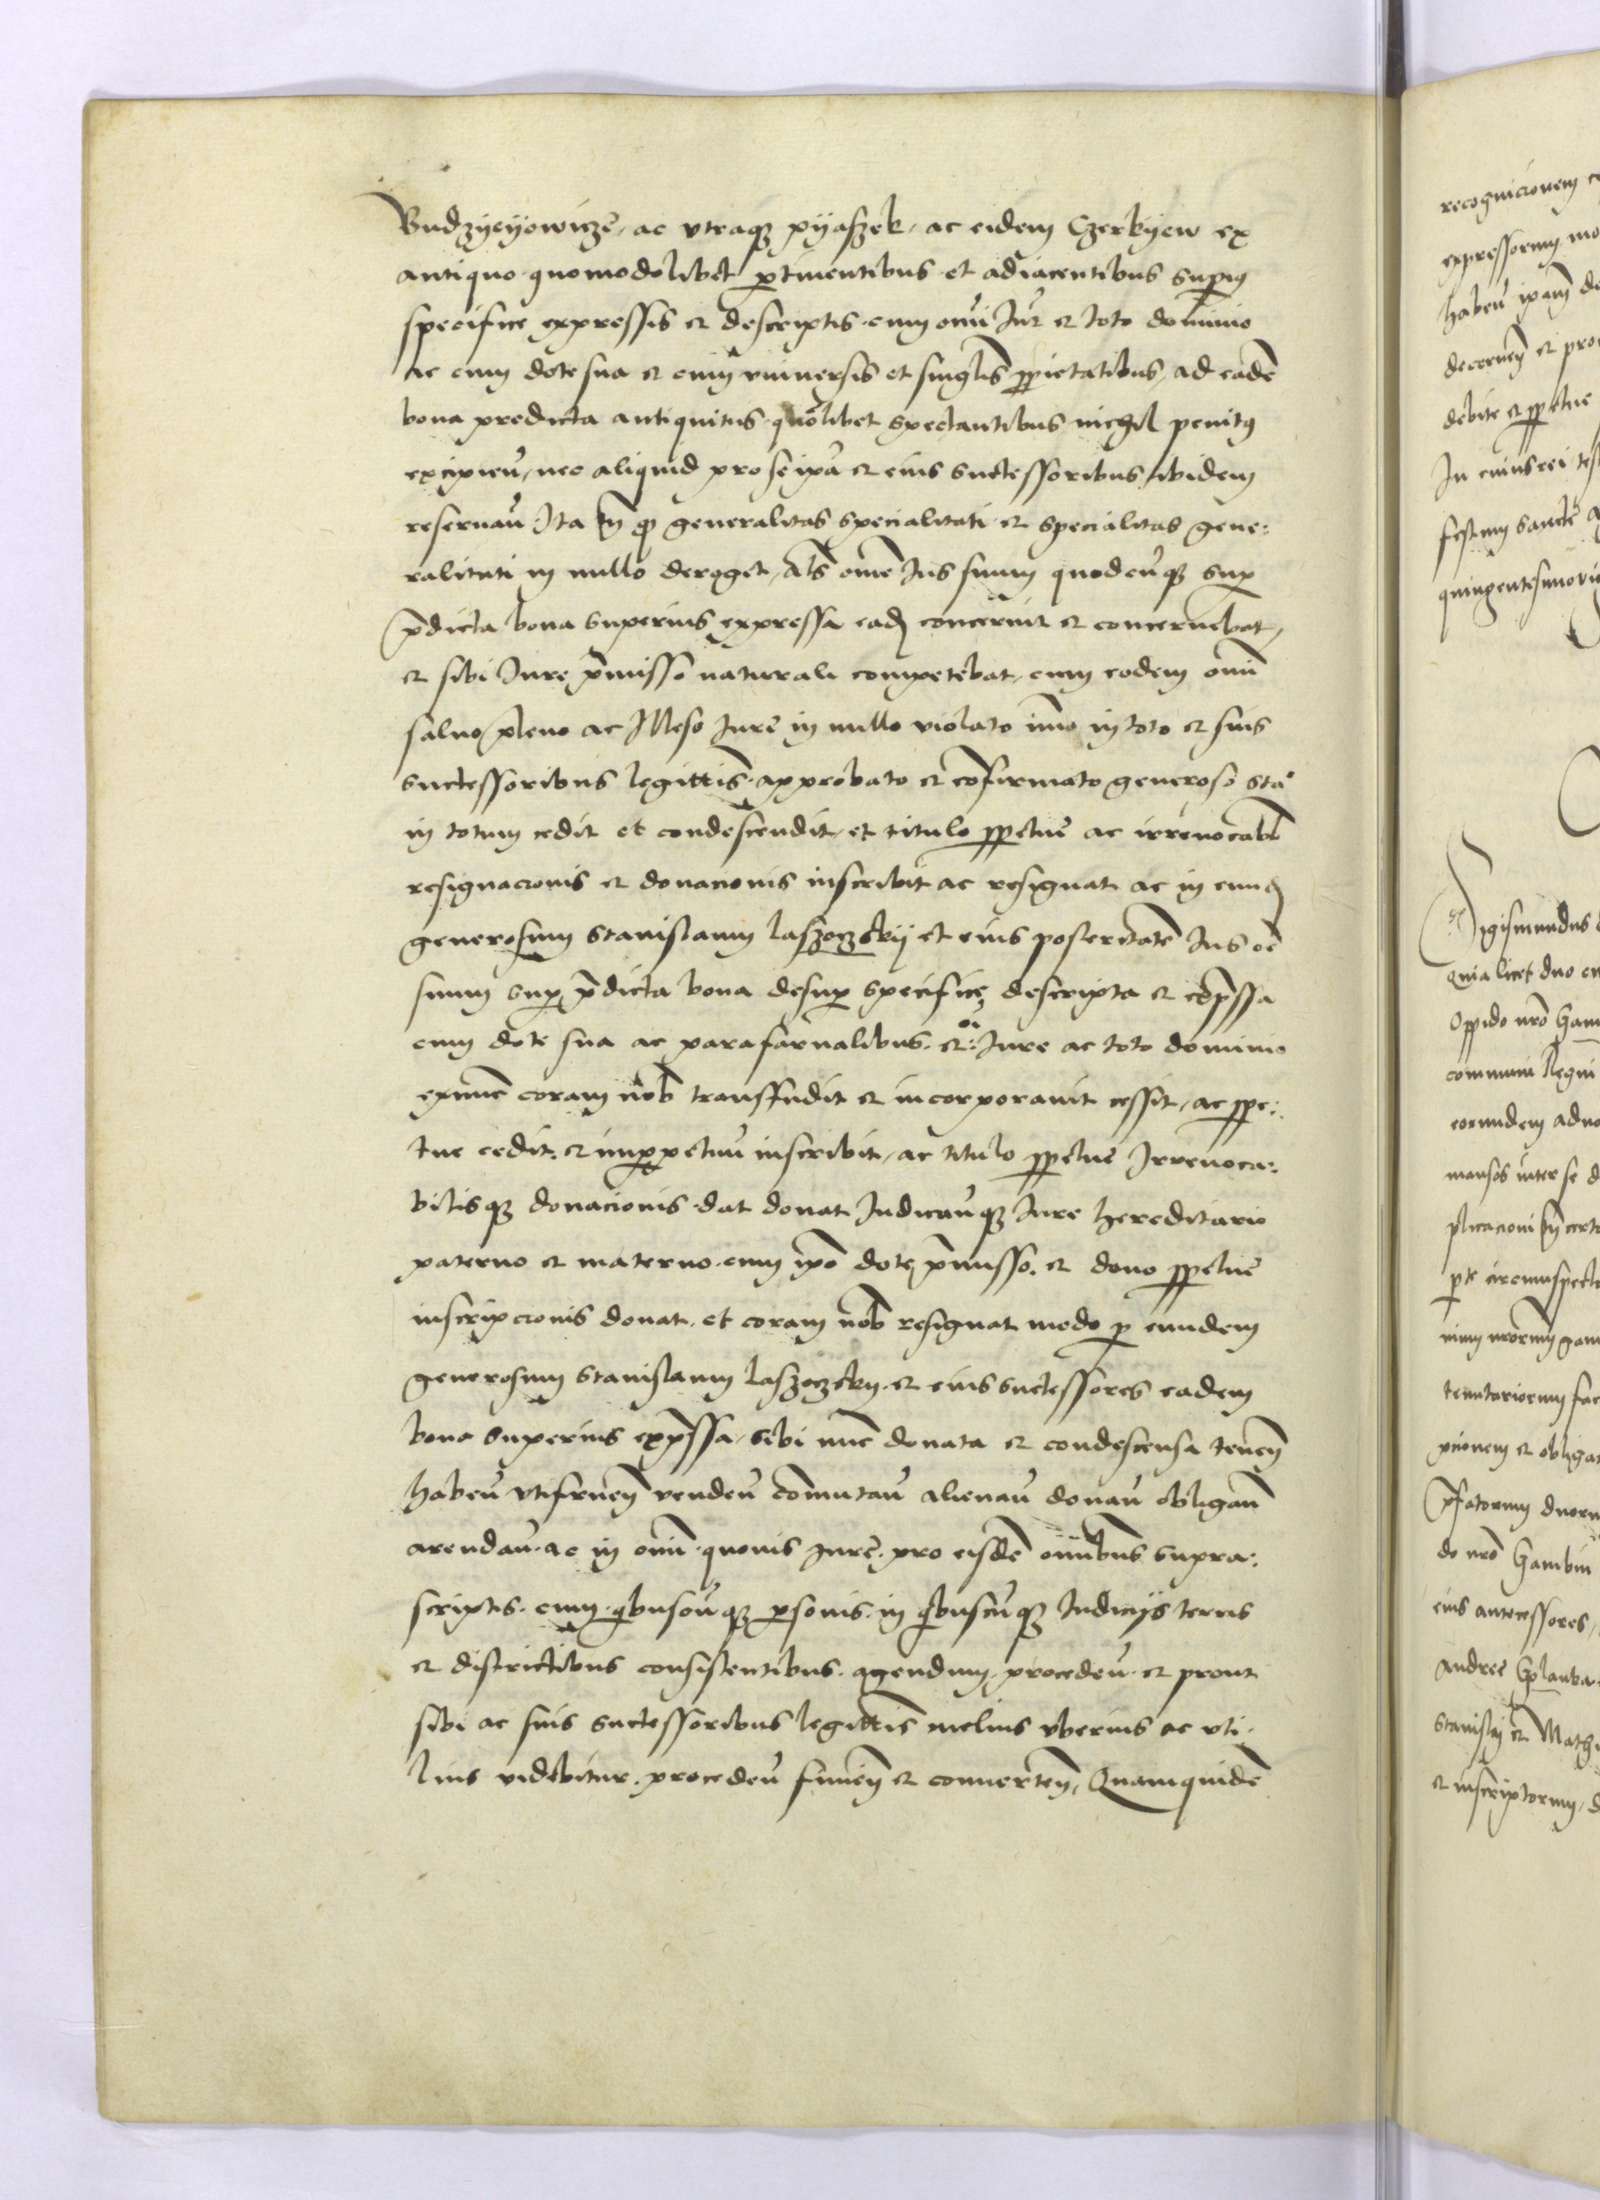 Budzyeyowicze, ac vtraqz pyaszek, ac eidem Czerkyew ex
antiquo quomodolibet ptinentibus et adiacentibus supius
specifice expressis et descriptis cum omi Jur et toto dominio
ac cum dote sua et cum vniuersis et singlis ppietatibus, ad eade
bona predicta antiquitus quolibet spectantibus nichil penitus
excipien, nec aliquid pro se ipa et eius successoribus ibidem
reseruan, Ita tn q generalitas specialitati et specialitas gene:
ralitati in nullo deroget, als ome Jus suum quodcunqz sup
pdicta bona superius expressa ead concernit et concernebat,
et sibi Jure pmisso naturali competebat, cum eodem omi
saluo pleno ac Illeso Jure in nullo violato imo in toto et suis
successoribus legittis approbato et confirmato generoso sta
in totum cedit et condescendit, et titulo ppetue ac irreuocabl
resignacionis et donacionis inscribit ac resignat ac in eund
generosum Stanislaum Laszoczskij et eius posteritate Jus oe
suum sup pdicta bona desup specifice descripta et expssa
cum dote sua ac parafarnalibus et oi Jure ac toto dominio
exnunc coram nob transfudit et incorporauit cessit, ac ppe:
tue cedit et inppetuu inscribit, ac titulo ppetue Irreuoca:
bilisqz donacionis dat donat Judicauqz Jure hereditario
paterno et materno cum ipo dote pmisso et dono ppetue
inscripcionis donat et coram nob resignat modo p eundem
generosum Stanislaum Laszoczsky et eius successores eadem
bona superius expssa, sibi nunc donata et condescensa tenen
haben vtifruen venden comutan alienan donan obligan
arendan ac in omi quouis Jure pro eisde omibus supra:
scriptis cum qbuscunqz psonis in qbuscuqz Judicijs terris
et districtibus consistentibus agendum proceden et prout
sibi ac suis successoribus legittis melius vberius ac vti
lius videbitur proceden finien et conuerten, Quamquide
recognicionem
expressorum mo
haben ipam de
decernen et pro
debite et ppetue
In cuius rei tes
festum sancte
quingentesimo vi
Sigismundus
Quia licet duo
Oppido nro Gam
communi Regni
eorundem aduo
mansos inter se d
plicacioni tn certo
pte circumspect
nium nrorum gam
tenutariorum fac
pcionem et obliga
pfatorum duoru
do nro Gambin
eius antecessores,
Andree Golanba
Stanislaj et Math
et inscriptorum, d